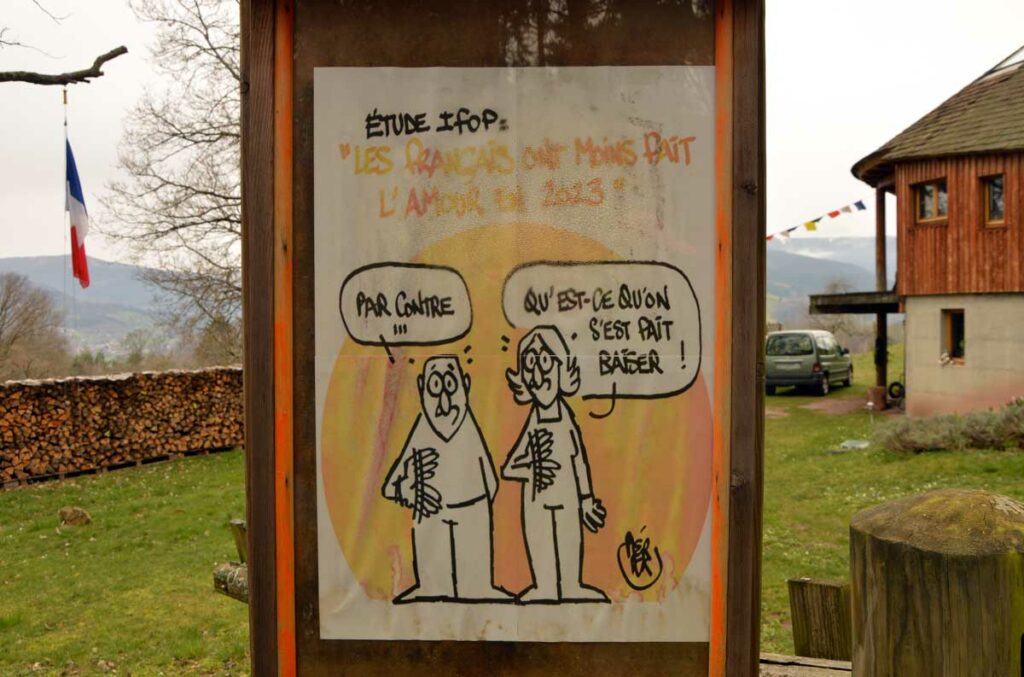 ÉTUDE IFOP:
"LES FRANÇAIS ONT MOINS FAIT
L'AMOUR EN 2023"
PAR CONTRE
...
QU'EST-CE QU'ON
S'EST FAIT
BAISER !